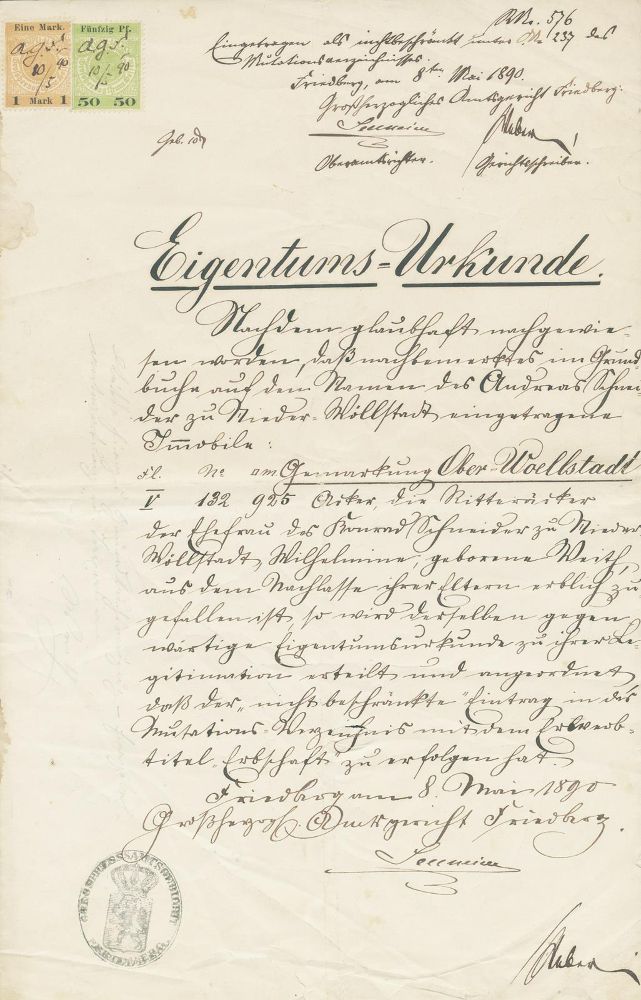 Eine Mark.
Fünfzig Pf.
10/5 90
10/5 90
1 Mark 1
50 50
No. 576
Eingetragen als nichtbeschränkt unter No 237 des
Mutationsverzeichnisses.
Friedberg, am 8ten Mai 1890.
Großherzogliches Amtsgericht Friedberg.
Oberamtsrichter. Gerichtsschreiber.
Eigentums-Urkunde.
Nachdem glaubhaft nachgewie-
sen worden, daß nachbemerktes im Grund-
buche auf den Namen des Andreas Schnei-
der zu Nieder-Wöllstadt eingetragene
Immobile:
Fl. No qm Gemarkung Ober-Woellstadt
V 132 925 Acker, die Ritteräcker
der Ehefrau des Konrad Schneider zu Nieder
Wöllstadt, Wilhelmine, geborene Weith,
aus dem Nachlasse ihrer Eltern erblich zu
gefallen ist, so wird derselben gegen
wärtige Eigentumsurkunde zu ihrer Le-
gitimation erteilt und angeordnet,
daß der "nicht beschränkte" Eintrag in das
Mutations-Verzeichnis mit dem Erwerb-
titel "Erbschaft" zu erfolgen hat.
Friedberg am 8. Mai 1890
Großherzogl. Amtsgericht Friedberg.
GROSSHERZ. HESS. AMTSGERICHT
FRIEDBERG